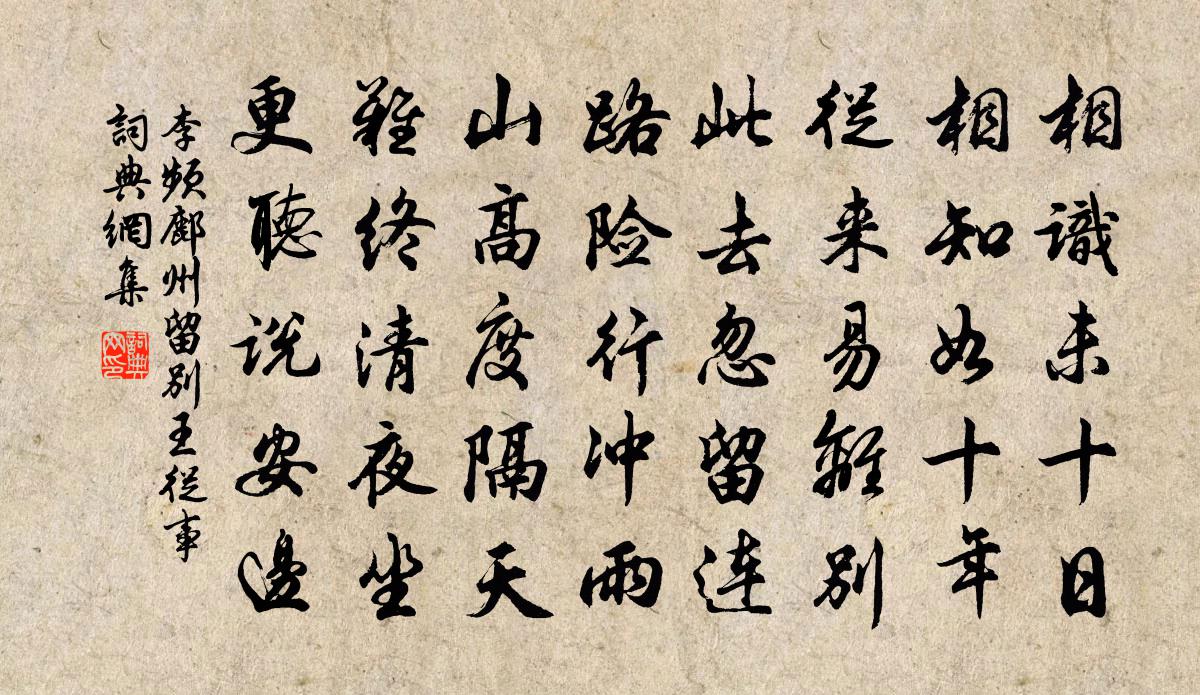 相識未十日
相知如十年
從来易離別
此去忽留連
路险行冲雨
山高度隔天
難终清夜坐
更聽说安邊
李頻鄜州留别王從事
詞典網集
詞典网印